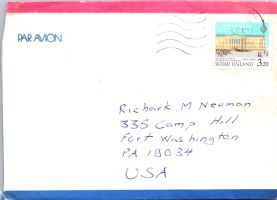 PAR AVION
SUOMI FINLAND 3,20
Richark M Neuman
335 Camp Hill
Fort Washington
PA 19034
USA